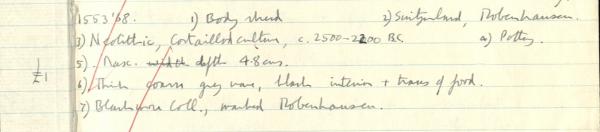 1553'68. 1) Body sherd 2) Switzerland, Robenhausen.
3) Neolithic, Cortaillod culture, c. 2500-2200 BC. 4) Pottery.
5) Max. width depth 4.8 cms.
£1
6) Thick coarse grey ware, black interior + traces of food.
7) Blackmore Coll., marked Robenhausen.